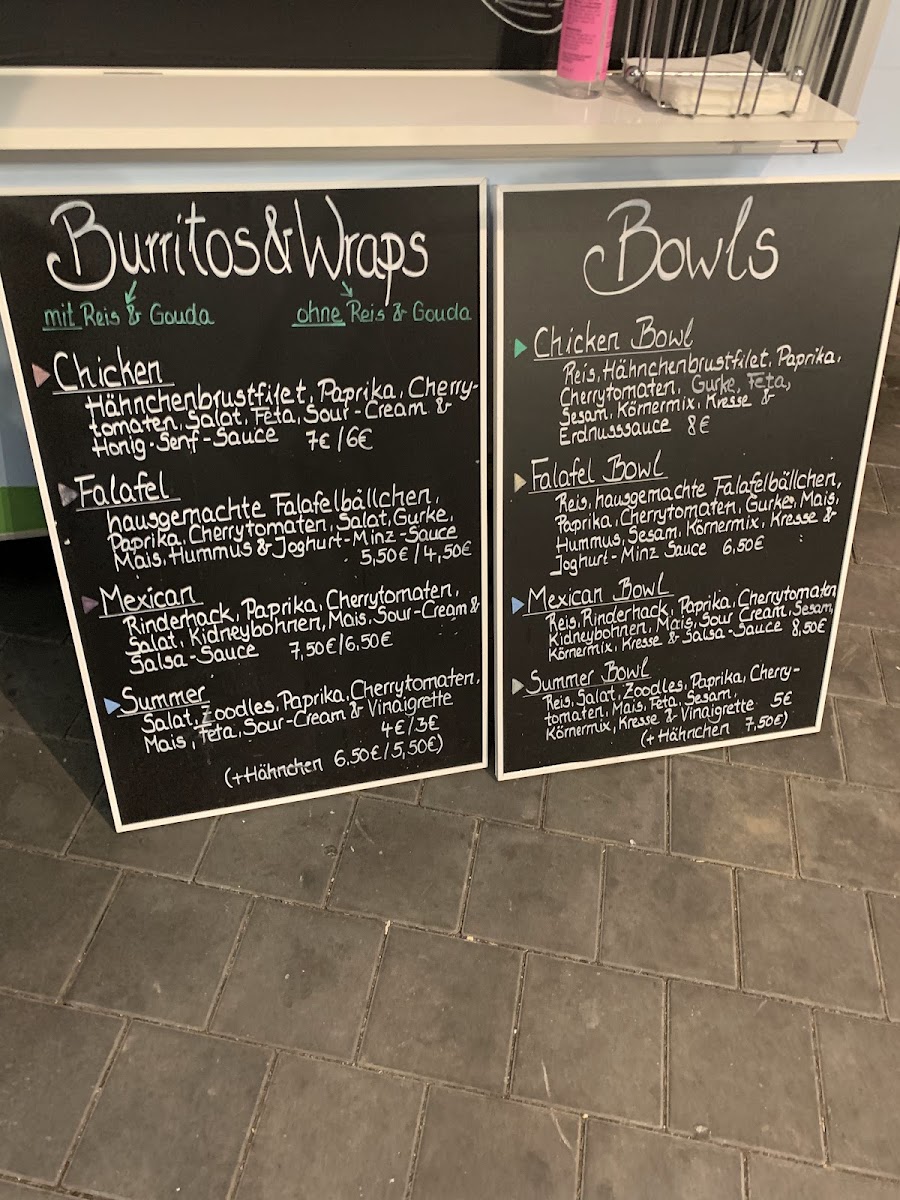 Burritos&Wraps
mit Reis & Gouda
ohne Reis & Gouda
Chicken
Hähnchenbrustfilet, Paprika, Cherry-
tomaten, Salat, Feta, Sour-Cream &
Honig-Senf-Sauce 7€/6€
Falafel
hausgemachte Falafelbällchen,
Paprika, Cherrytomaten, Salat, Gurke,
Mais, Hummus & Joghurt-Minz-Sauce
5,50€/4,50€
Mexican
Rinderhack, Paprika, Cherrytomaten,
Salat, Kidneybohnen, Mais, Sour-Cream &
Salsa-Sauce 7,50€/6,50€
Summer
Salat, Zoodles, Paprika, Cherrytomaten,
Mais, Feta, Sour-Cream & Vinaigrette
4€/3€
(+Hähnchen 6,50€/5,50€)
Bowls
Chicken Bowl
Reis, Hähnchenbrustfilet, Paprika,
Cherrytomaten, Gurke, Feta,
Sesam, Körnermix, Kresse &
Erdnusssauce 8€
Falafel Bowl
Reis, hausgemachte Falafelbällchen,
Paprika, Cherrytomaten, Gurke, Mais,
Hummus, Sesam, Körnermix, Kresse &
Joghurt-Minz Sauce 6,50€
Mexican Bowl
Reis, Rinderhack, Paprika, Cherrytomaten
Kidneybohnen, Mais, Sour Cream, Sesam,
Körnermix, Kresse & Salsa-Sauce 8,50€
Summer Bowl
Reis, Salat, Zoodles, Paprika, Cherry-
tomaten, Mais, Feta, Sesam,
Körnermix, Kresse & Vinaigrette 5€
(+Hähnchen 7,50€)